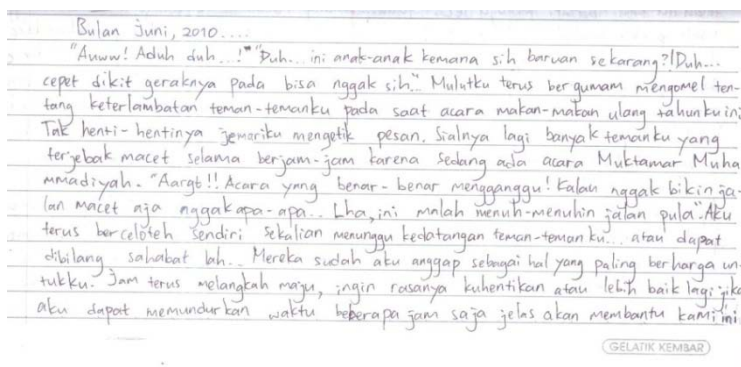 Bulan Juni, 2010....
"Auww! Aduh duh...!" "Duh... ini anak-anak kemana sih barusan sekarang?! Duh...
cepet dikit geraknya pada bisa nggak sih." Mulutku terus bergumam mengomel ten-
tang keterlambatan teman-temanku pada saat acara makan-makan ulang tahunku ini.
Tak henti-hentinya jemariku mengetik pesan. Sialnya lagi banyak temanku yang
terjebak macet selama berjam-jam karena sedang ada acara Muktamar Muha
mmadiyah. "Aargt!! Acara yang benar-benar mengganggu! Kalau nggak bikin ja-
lan macet aja nggak apa-apa.. Lha, ini malah menuh-menuhin jalan pula". Aku
terus berceloteh sendiri sekalian menunggu kedatangan teman-temanku... atau dapat
dibilang sahabat lah.. Mereka sudah aku anggap sebagai hal yang paling berharga un-
tukku. Jam terus melangkah maju, ingin rasanya kuhentikan atau lebih baik lagi jika
aku dapat memundurkan waktu beberapa jam saja jelas akan membantu kami ini
GELATIK KEMBAR